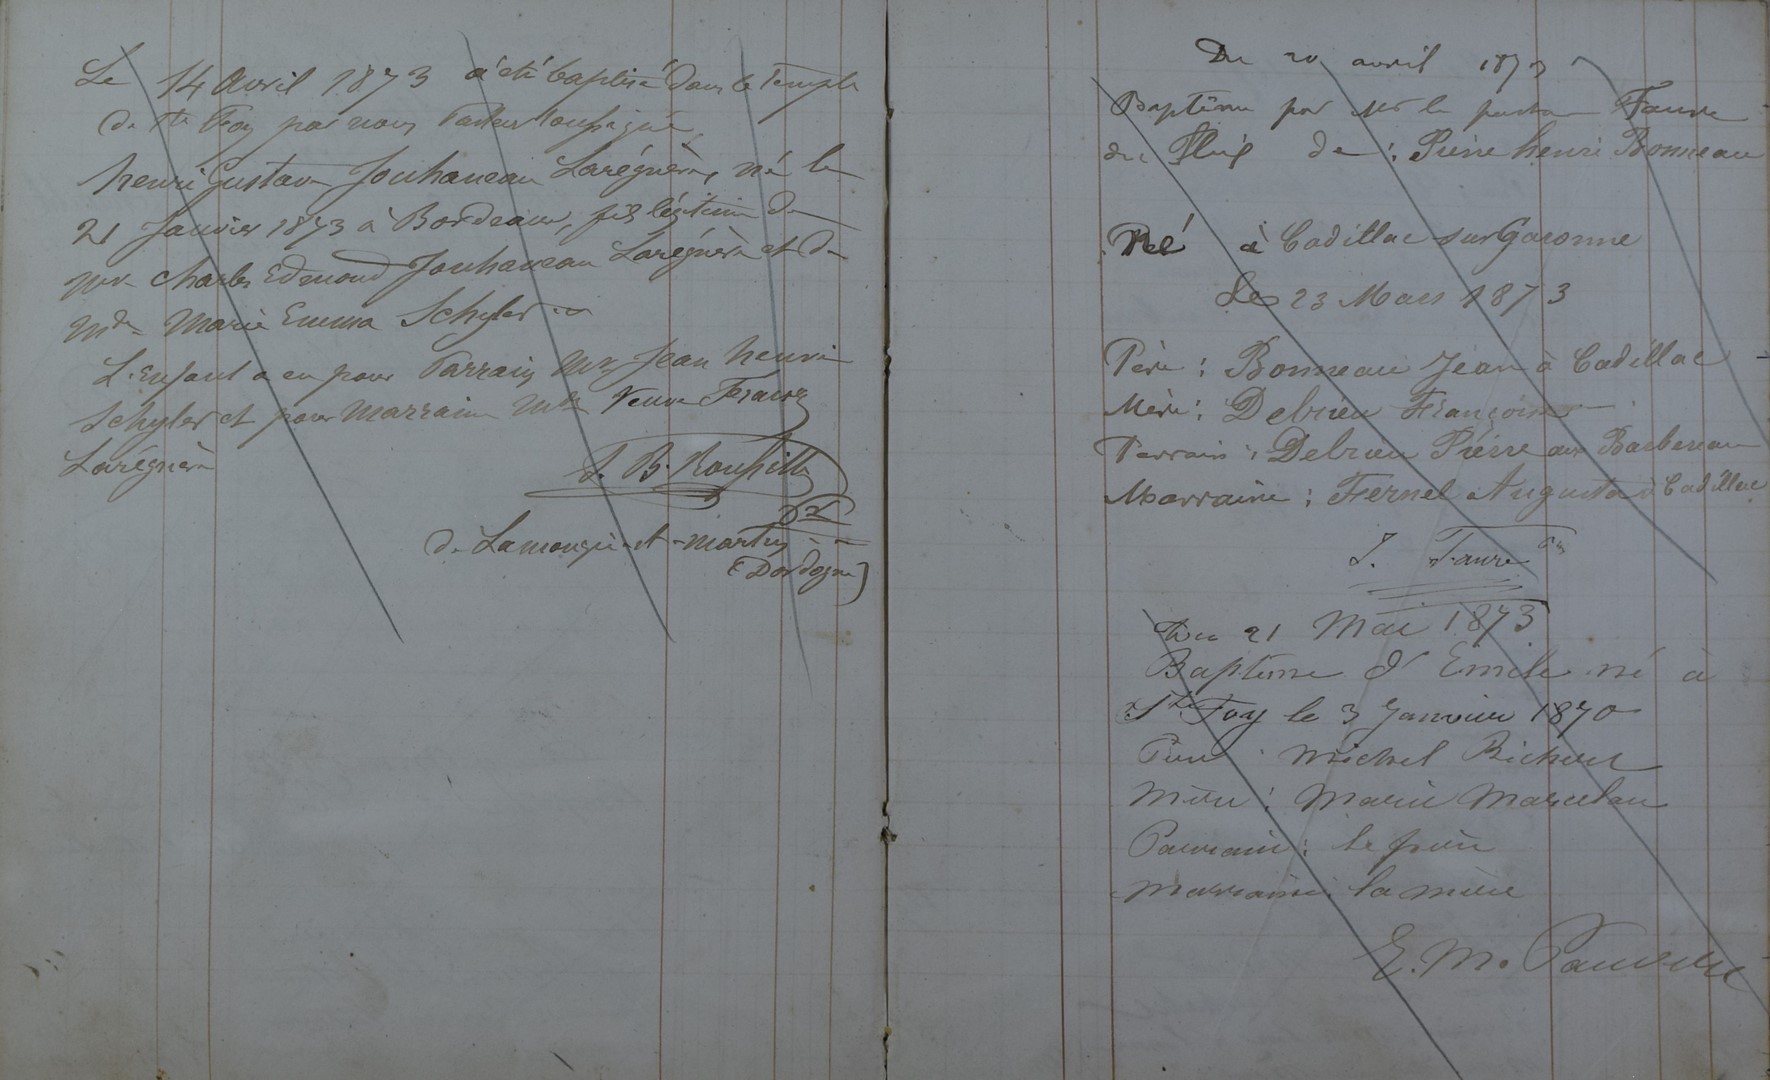 Le 14 Avril 1873 a été baptisé dans le Temple
de Ste Foy par nous Pasteur soussigné,
henri Gustave Jouhaneau Larégnère, né le
21 Janvier 1873 à Bordeaux, fils légitime de
Mr Charles Edmond Jouhaneau Larégnère et de
Mde Marie Emma Schyler
L'Enfant a eu pour Parrain Mr Jean henri
Schyler et pour Marraine Mde Veuve
Larégnère
J. B. Roussille
Pr
de Lamonzie-St-martin
(Dordogne)
Du 20 avril 1873
Baptême par Mr le pasteur Faure
du fils de : Pierre henri Bonneau
Né à Cadillac sur Garonne
Le 23 Mars 1873
Père : Bonneau Jean à Cadillac
Mère : Debrieu Françoise
Parrain : Debrieu Pierre
Marraine : Fernel Augusta à Cadillac
J. Faure
Du 21 Mai 1873
Baptême d'Emile né à
Ste Foy le 3 Janvier 1870
Père : Michel
Mère : Marie
Parrain : le père
Marraine : la mère
E. M.